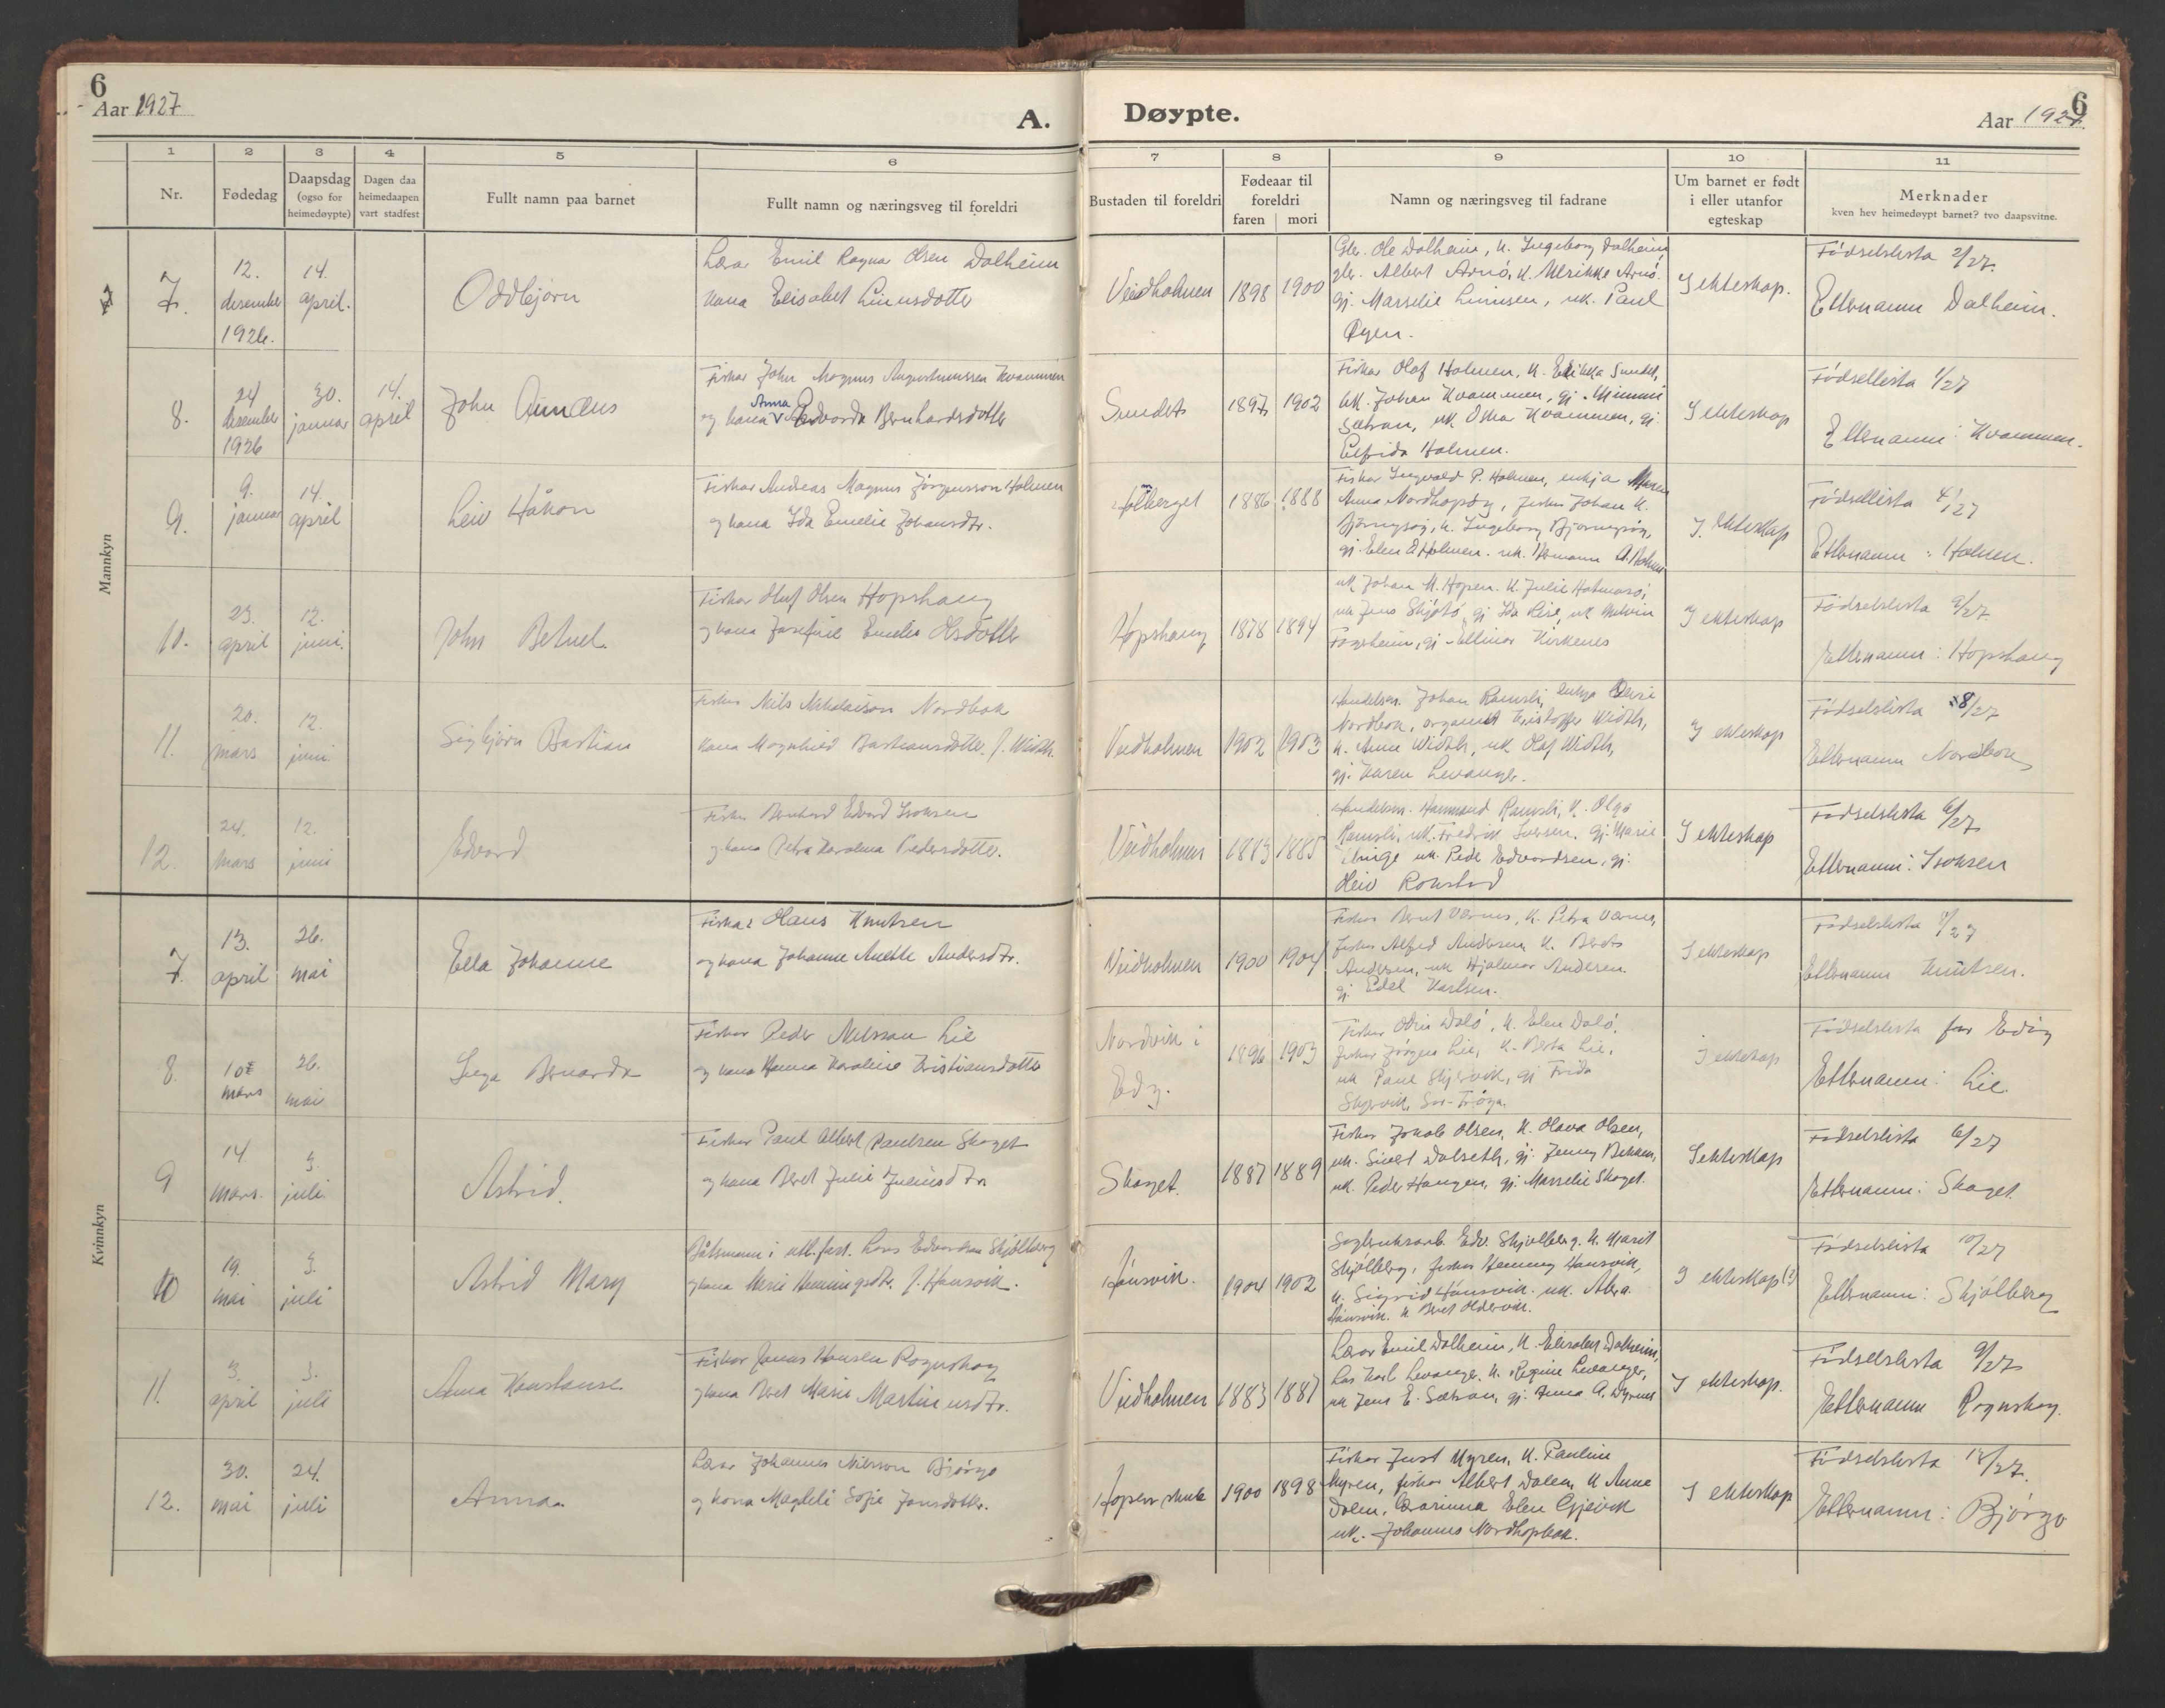 6
Aar 1927
A.
Døypte.
6
Aar 1927.
1 2 3 4 5 6 7 8 9 10 11
Nr.
Fødedag
Daapsdag
(ogso for
heimedøypte)
Dagen daa
heimedaapen
vart stadfest
Fullt namn paa barnet
Fullt namn og næringsveg til foreldri
Bustaden til foreldri
Fødeaar til
foreldri
faren mori
Namn og næringsveg til fadrane
Um barnet er født
i eller utanfor
egteskap
Merknader
kven hev heimedøypt barnet? tvo daapsvitne.
Mannkyn
7.
12.
desember
1926.
14.
april.
Oddbjørn
Lærar Emil Ragnar Olsen Dalheim
kona Elisabet Linusdotter
Veidholmen
1898 1900
Gbr. Ole Dalheim, k. Ingeborg Dalheim,
gbr. Albert Arnø, k. Ulrikke Arnø.
gj. Marselie Linusen, uk. Paul
Øyen.
I ekteskap.
Fødselslista 2/27.
Etternamn Dalheim.
8.
24
desember
1926
30.
januar
14.
april
John
Fiskar John Magnus Augustinussen Kvammen
Anna
og kona Edvarda Bernhardsdotter
Sundet
1897 1902
Fiskar Olaf Holmen, k. Erikka Sundet,
uk. Johan Kvammen, gj. Minni
Sætran, uk Oskar Kvammen, gj.
Elfrida Holmen.
I ekteskap
Fødsellista 1/27
Etternamn: Kvammen.
9.
9.
januar
14.
april
Leiv Håkon
Fiskar Andreas Magnus Jørgensson Holmen
og kona Ida Emelie Johansdtr.
1886 1888
Fiskar Ingvald P. Holmen, enkja Maren
Anna Nordhopøy, fiskar Johan K.
Bjørnøy, k. Ingeborg
gj. Elen Holmen. uk. A. Holmen
I. ekteskap
Fødsellista 4/27
Etternamn: Holmen.
10.
23.
april
12.
juni.
John Betuel.
Fiskar Oluf Olsen Hopshaug
og kona Josefine Emelie Olsdotter
Hopshaug
1878 1894
uk Johan M. Hopen. k. Julie
uk Jens gj Ida uk
gj. Ellinor Kirkenes
I ekteskap
Fødselslista 9/27.
Etternamn: Hopshaug
11.
20.
mars
12.
juni.
Sigbjørn Bastian
Fiskar Nils Nikolaison Nordbok
kona Magnhild Bastiansdotter f. Width.
Veidholmen
1902 1903
Handelsm. Johan Ramsli, enkja
Nordbok, organist Kristoffer Width,
k. Anna Width, uk Olaf Width,
gj. Karen Levanger.
I ekteskap
Fødselslista 8/27
Etternamn Nordbok
12.
24.
mars
12.
juni
Edvard
Fiskar Bernhard Edvard Isaksen
og kona Petra Karolina Pedersdotter.
Veidholmen
1883 1885
Handelsm. Hammond Ramsli, k. Olga
Ramsli, uk. Fredrik Iversen, gj. Marie
uk. Peder Edvardsen, gj.
Rokstad
I ekteskap
Fødselslista 6/27
Etternamn: Isaksen
Kvinnkyn
7.
13.
april
26.
mai
Ella Johanne
Fiskar Olaus Knutsen
og kona Johanne Anette Andersdtr.
Veidholmen
1900 1904
Fiskar Bernt Værnes, k. Petra Værnes,
fiskar Alfred Andersen, k. Berdes
Andersen, uk Hjalmar Andersen.
gj. Edel Karlsen.
I ekteskap
Fødselslista 7/27
Etternamn Knutsen.
8.
10.
mars
26.
mai
Inga Bernarda
Fiskar Peder Nilsson Lie
og kona Hanna Karoline Kristiansdotter
Nordvik i
Edøy.
1896 1903
Fiskar Odin Dalø, k. Elen Dalø.
fiskar Jørgen Lie, k. Berta Lie,
uk Paul Skjervik, gj Frida
Skjervik, Sør-Frøya.
I ekteskap
Fødselslista for Edøy
Etternamn: Lie.
9
14.
mars.
3.
juli
Astrid.
Fiskar Paul Albert Paulsen Skaget
og kona Beret Julie Juliusdtr.
Skaget.
1887 1889
Fiskar Jakob Olsen, k. Olava Olsen,
uk. Sivert Dalseth, gj. Jenny Bekken,
uk. Peder Haugen, gj. Marselie Skaget.
I ekteskap
Fødselslista 6/27
Etternamn: Skaget.
10
19.
mai
3.
juli
Astrid Mary
Båtsmann i Lars Edvardsen Skjølberg
og kona Marie Henningsdtr. f. Hansvik.
Hansvik.
1904 1902
Sagbruksarb. Edv. Skjølberg. k. Marit
Skjølberg, fiskar Henning Hansvik,
k. Sigrid Hansvik. uk.
Hansvik. k Beret Oldervik.
I ekteskap(?)
Fødselslista 10/27
Etternamn: Skjølberg
11.
3.
april
3.
juli
Anna Konstanse
Fiskar Jonas Hansen Rognskog
og kona Beret Marie Martinusdtr.
Veidholmen
1883 1887
Lærar Emil Dalheim, k. Elisabet Dalheim,
Los Karl Levanger, k. Regine Levanger,
uk Jens E. Sætran, gj. Anna A. Dyrnes
I ekteskap.
Fødselslista 9/27
Etternamn Rognskog.
12.
30.
mai
24.
juli
Anna
Lærar Johannes Nilsson Bjørgo
og kona Magdeli Sofie Jonsdotter.
Hopen skule
1900 1898
Fiskar Just Myren, k. Pauline
Myren, fiskar Albert Dalen, k Anne
Dalen, lærarinna Elen Gjelvik
uk. Johannes Nordhopbak.
I ekteskap
Fødselslista 12/27.
Etternamn: Bjørgo